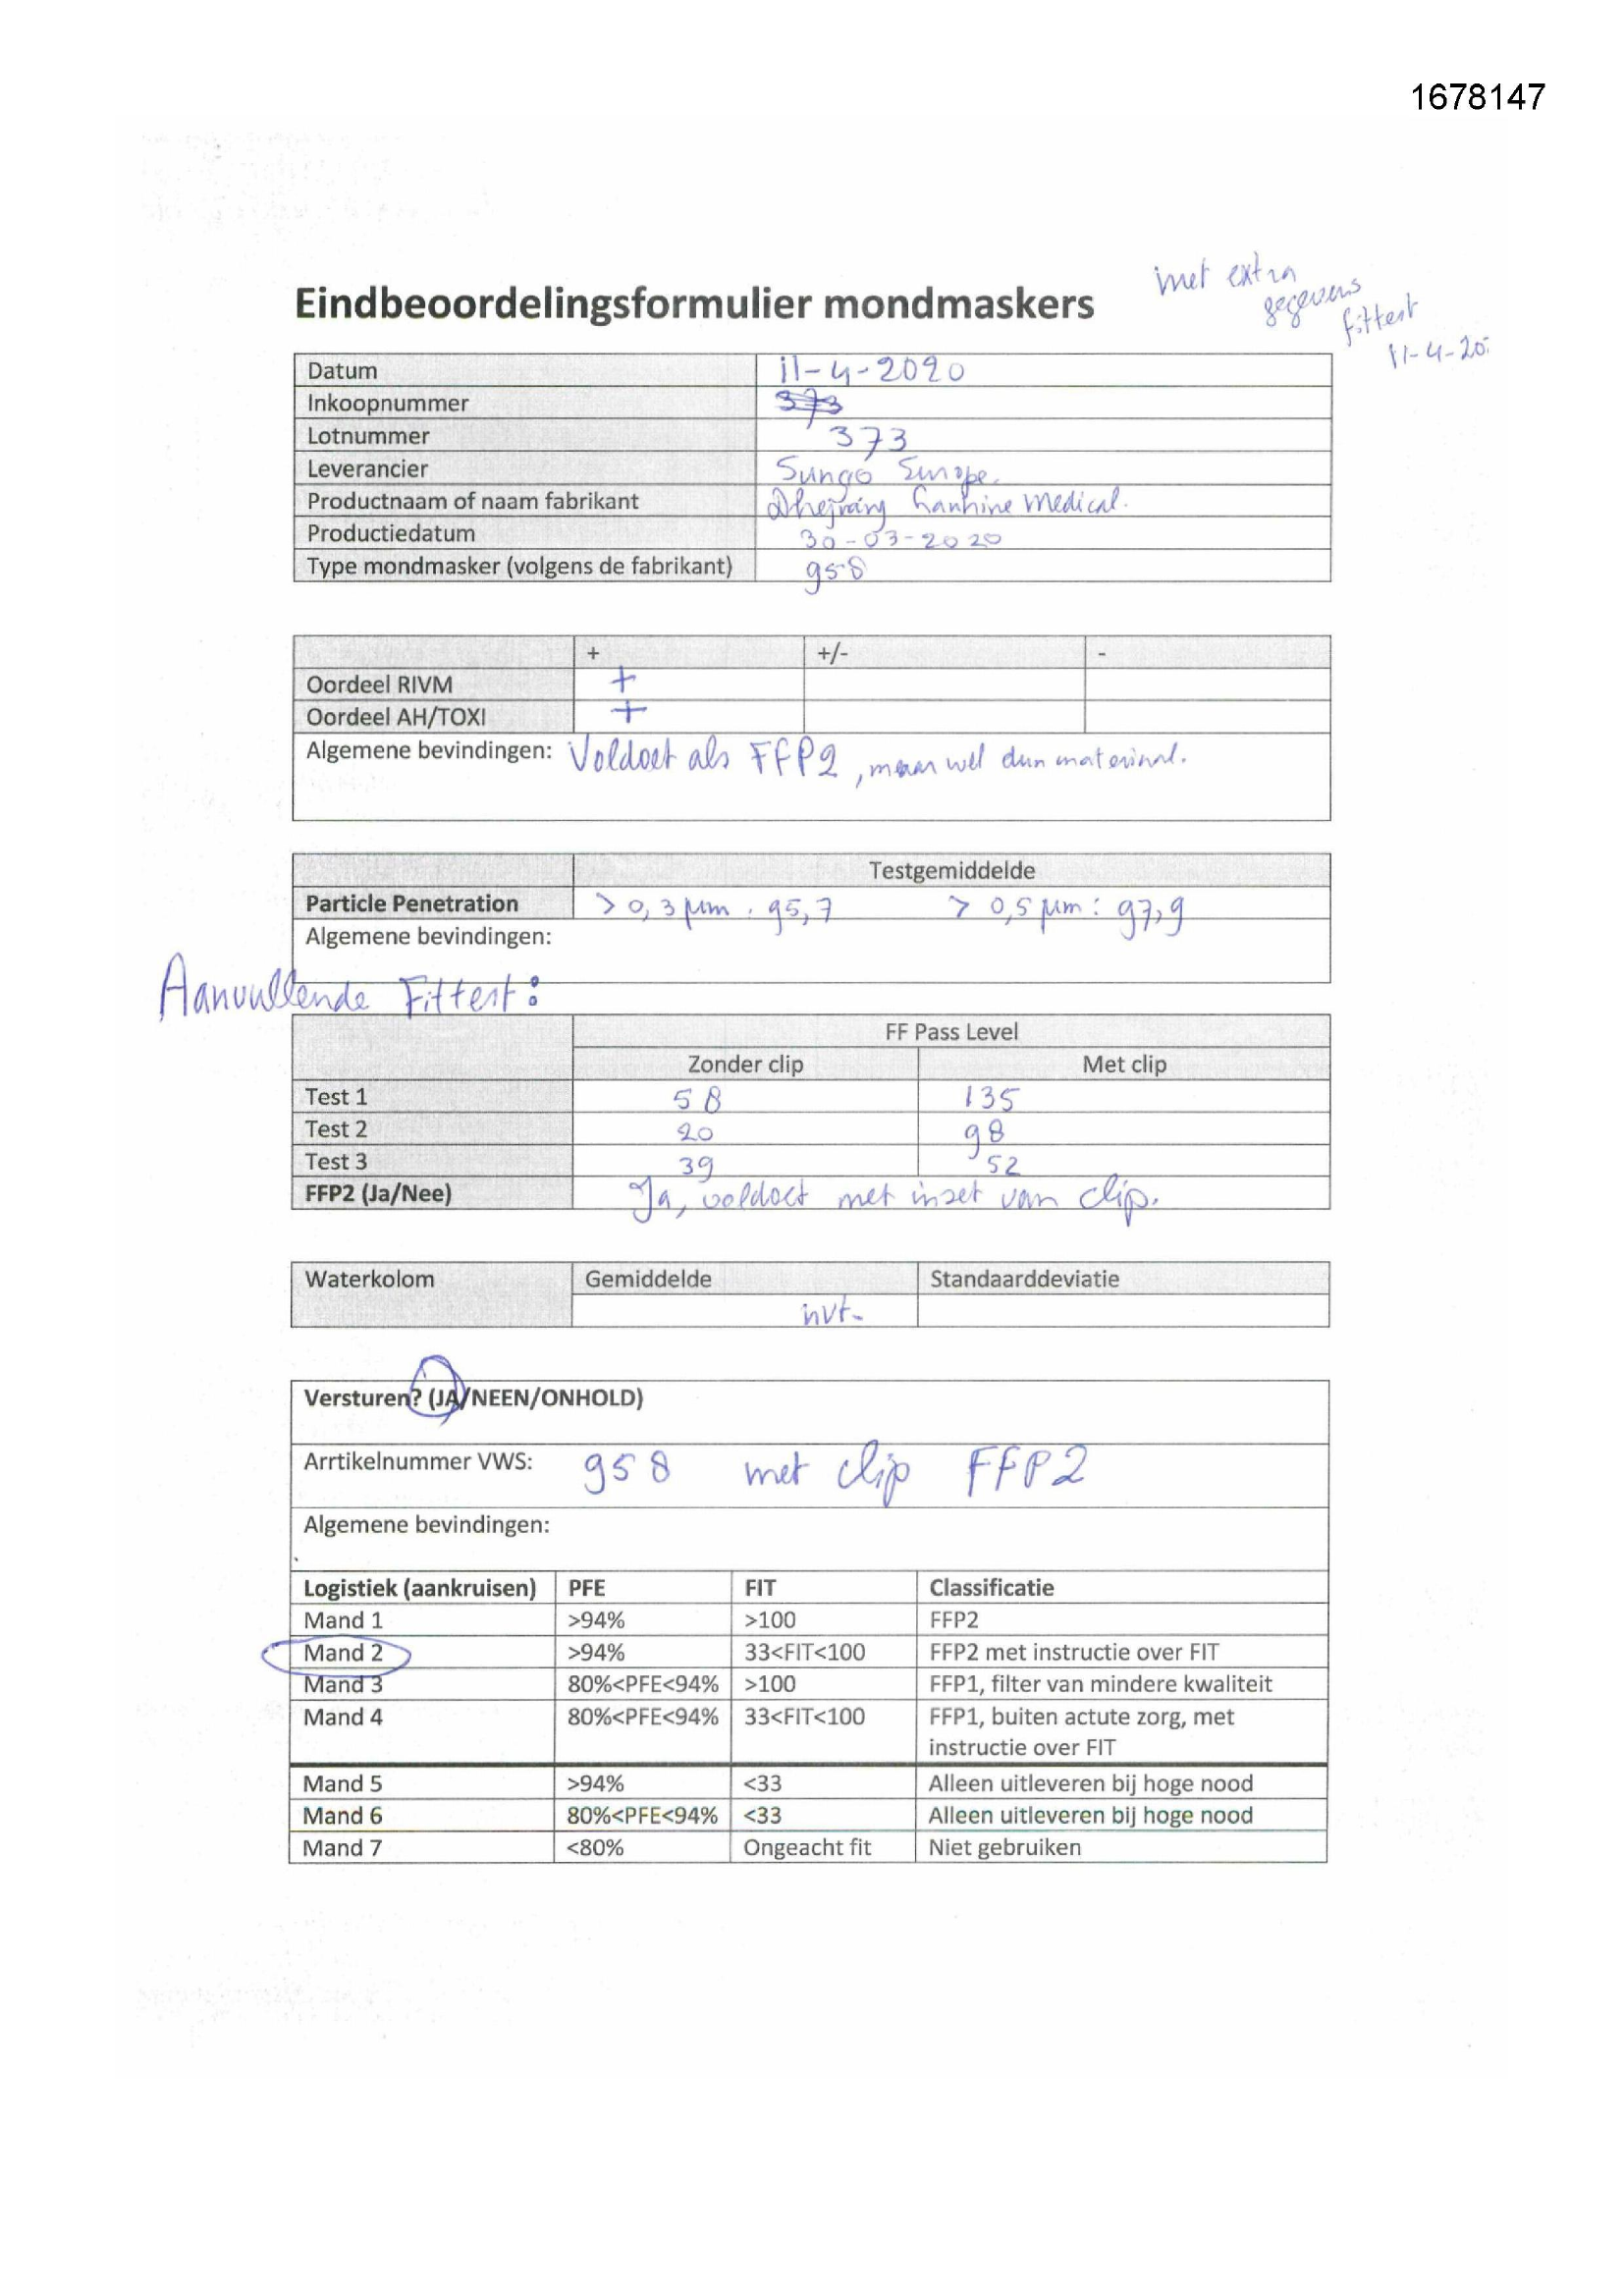 1678147
met extra
gegevens
fittest
11-4-20
Eindbeoordelingsformulier mondmaskers
Datum 11-4-2020
Inkoopnummer 373
Lotnummer 373
Leverancier Sungo Europe.
Productnaam of naam fabrikant medical.
Productiedatum 30-03-2020
Type mondmasker (volgens de fabrikant) 958
+ +/- -
Oordeel RIVM +
Oordeel AH/TOXI +
Algemene bevindingen: Voldoet als FFP2, maar wel dun materiaal.
Testgemiddelde
Particle Penetration > 0,3 µm : 95,7 > 0,5 µm : 97,9
Algemene bevindingen:
Aanvullende Fittest:
FF Pass Level
Zonder clip Met clip
Test 1 58 135
Test 2 20 98
Test 3 39 52
FFP2 (Ja/Nee) Ja, voldoet met inzet van clip.
Waterkolom Gemiddelde Standaarddeviatie
nvt.
Versturen? (JA/NEEN/ONHOLD)
Arrtikelnummer VWS: 958 met clip FFP2
Algemene bevindingen:
Logistiek (aankruisen) PFE FIT Classificatie
Mand 1 >94% >100 FFP2
Mand 2 >94% 33<FIT<100 FFP2 met instructie over FIT
Mand 3 80%<PFE<94% >100 FFP1, filter van mindere kwaliteit
Mand 4 80%<PFE<94% 33<FIT<100 FFP1, buiten actute zorg, met
instructie over FIT
Mand 5 >94% <33 Alleen uitleveren bij hoge nood
Mand 6 80%<PFE<94% <33 Alleen uitleveren bij hoge nood
Mand 7 <80% Ongeacht fit Niet gebruiken